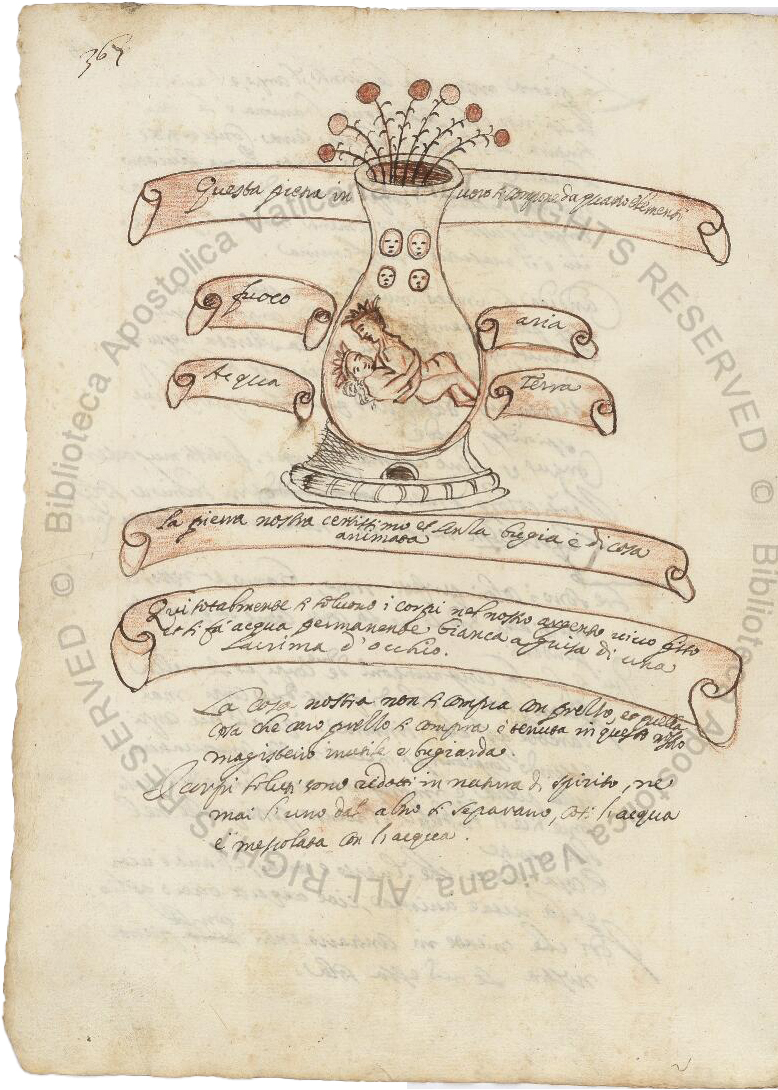 367
Questa pietra in uoro si compone da quatro elementi
fuoco
aria
Acqua
Terra
la pietra nostra certissimo et senza bugia è di cosa
animata
Qui totalmente si soluono i corpi nel nostro argento uiuo fisso
et si fa acqua permanente bianca a guisa di una
Lacrima d'occhio.
La cosa nostra non si compra con prezzo, et quella
cosa che caro prezzo si compra è tenuta in questo nostro
magisterio inutile e bugiarda.
I corpi soluti sono redotti in natura di spirito, ne
mai l'uno dal altro si separano, così l'acqua
è mescolata con l'acqua.
© Biblioteca Apostolica Vaticana ALL RIGHTS RESERVED © Biblioteca Apostolica Vaticana ALL RIGHTS RESERVED